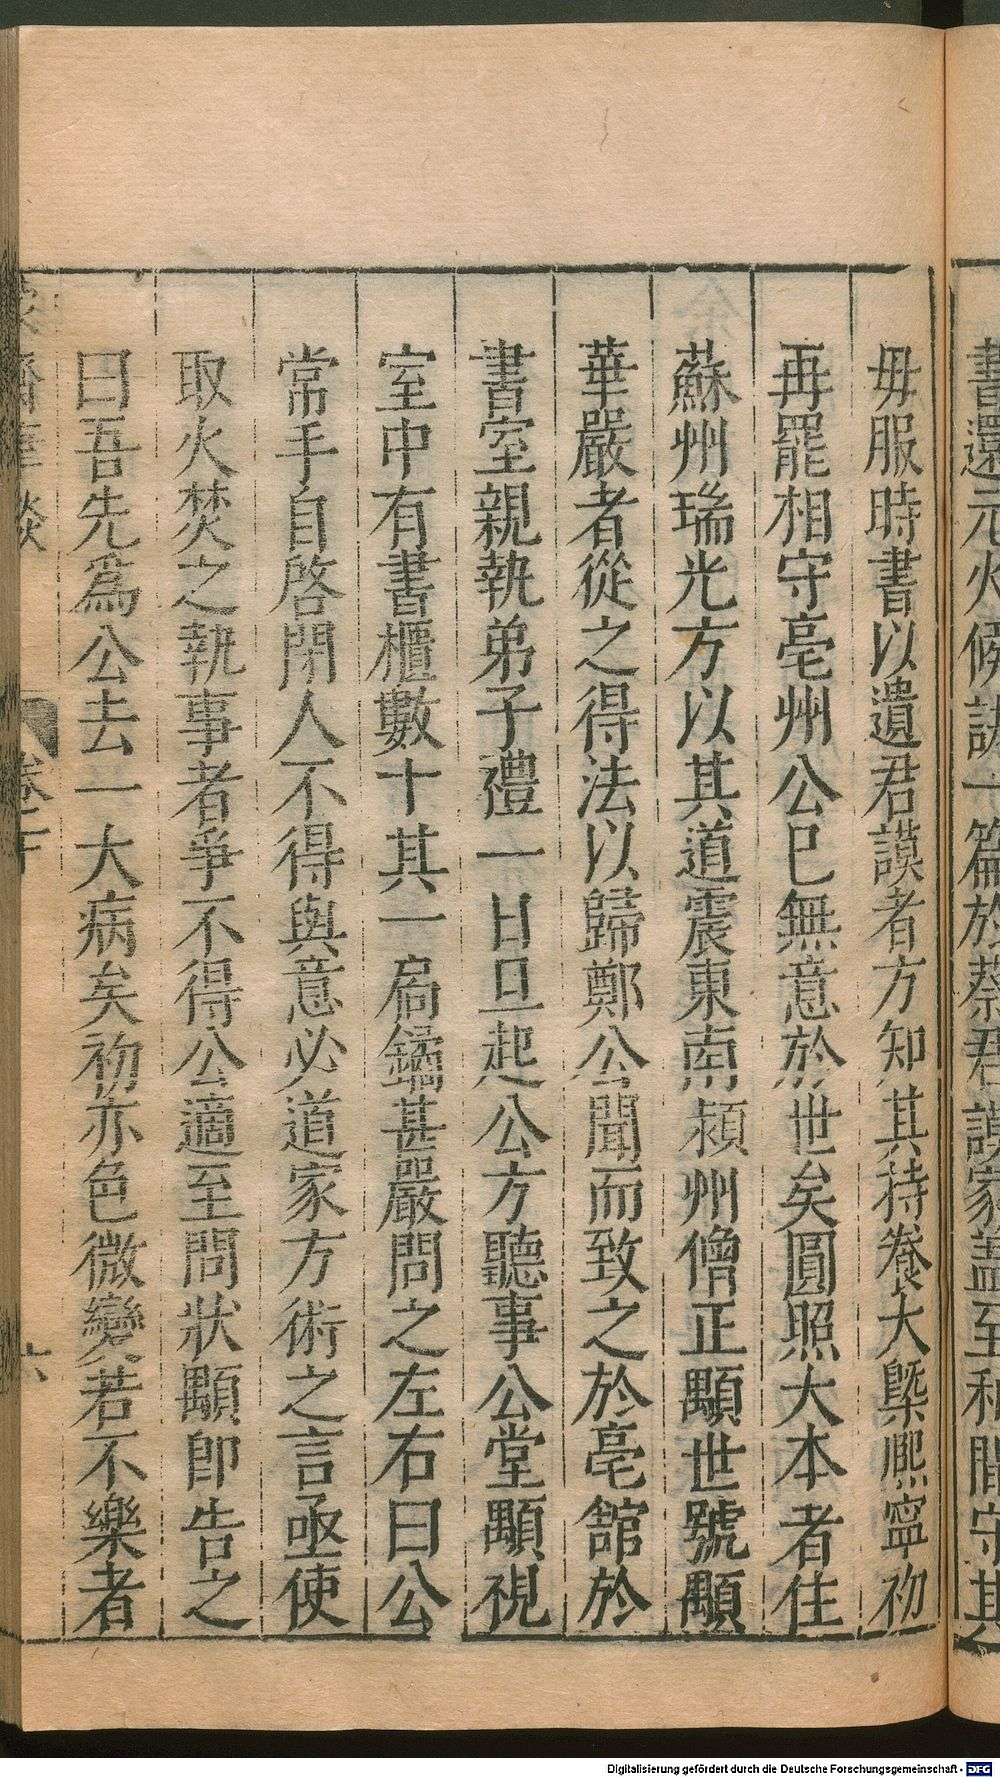 書還元火候訣一篇於蔡君謨家蓋至和間守其
毋服時書以遺君謨者方知其持養大槩熈寧初
再罷相守亳州公已無意於世矣圓照大本者住
蘇州瑞光方以其道震東南潁州僧正顒世號顒
華嚴者從之得法以歸鄭公聞而致之於亳館於
書室親執弟子禮一日旦起公方聽事公堂顒視
室中有書櫃數十其一扃鐍甚嚴問之左右曰公
常手自啓閉人不得與意必道家方術之言亟使
取火焚之執事者爭不得公適至問狀顒即告之
曰吾先爲公去一大病矣初亦色微變若不樂者
卷下
六
Digitalisierung gefördert durch die Deutsche Forschungsgemeinschaft - DFG